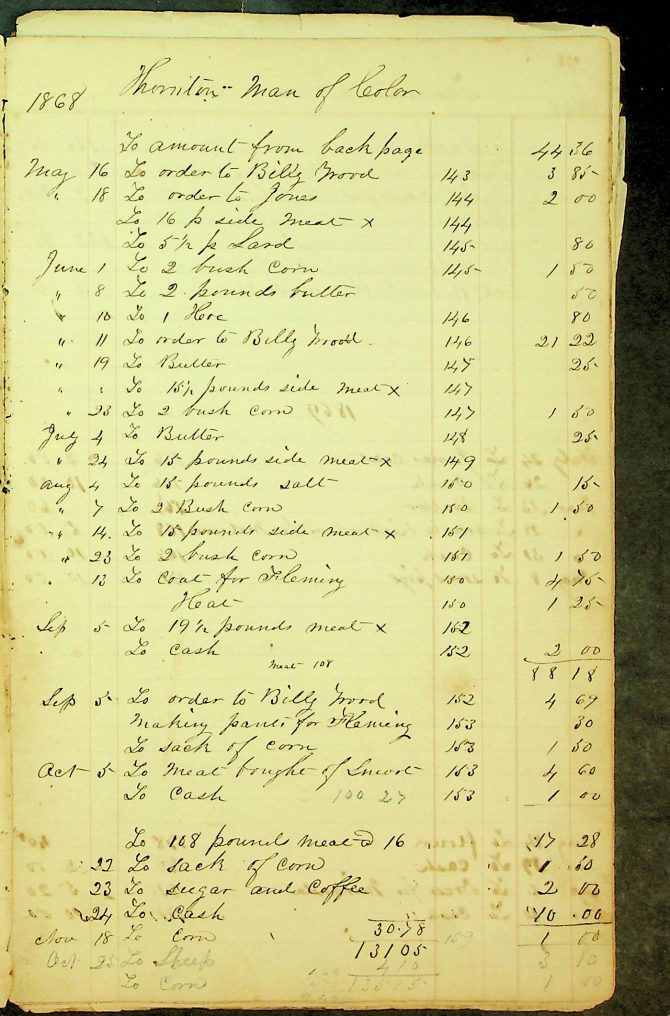 1868 Thornton - Man of Color
To amount from back page 44 36
May 16 To order to Billy Wood 143 3 85
" 18 To order to Jones 144 2 00
To 16 p side Meat x 144
To 5 1/2 p Lard 145 80
June 1 To 2 bush Corn 145 1 50
" 8 To 2 pounds butter 50
" 10 To 1 Hoe 146 80
" 11 To order to Billy Wood 146 21 22
" 19 To Butter 147 25
" " To 15 1/2 pounds side meat x 147
" 23 To 2 bush corn 147 1 50
July 4 To Butter 148 25
" 24 To 15 pounds side meat x 149
Aug 4 To 15 pounds salt 150 15
" 7 To 2 Bush Corn 150 1 50
" 14 To 15 pounds side meat x 151
" 23 To 2 bush corn 151 1 50
" 13 To Coat for Fleming 150 4 75
Heat 150 1 25
Sep 5 To 19 1/2 pounds meat x 152
To Cash 152 2 00
Meat 108 88 18
Sep 5 To order to Billy Wood 152 4 69
Making pants for Fleming 153 30
To sack of corn 153 1 50
Oct 5 To Meat bought of Smoot 153 4 60
To Cash 100 27 153 1 00
To 108 pounds meat @ 16 17 28
22 To sack of Corn 1 50
23 To sugar and Coffee 2 00
24 To Cash 10 00
30.78
Nov 18 To Corn 159 1 00
131 05
Oct 25 To Sheep 3 10
4 10
To Corn 135 15 1 00